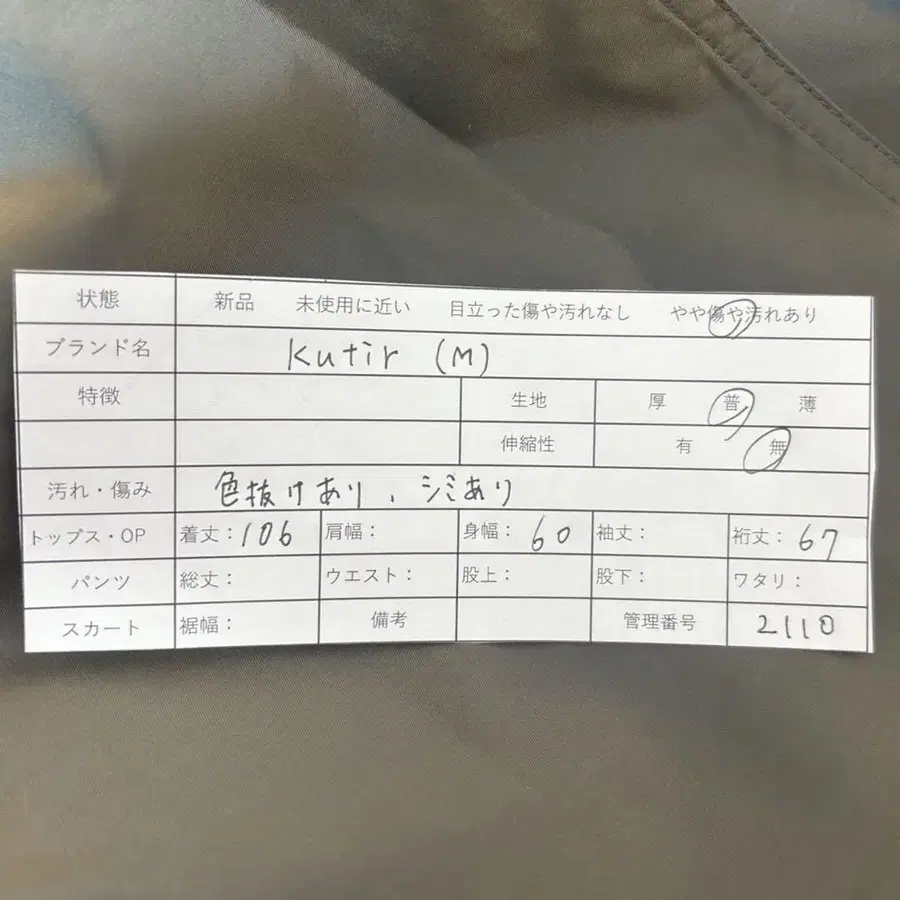 状態 新品 未使用に近い 目立った傷や汚れなし やや傷や汚れあり
ブランド名 Kutir (M)
特徴 生地 厚 普 薄
伸縮性 有 無
汚れ・傷み 色抜けあり、シミあり
トップス・OP 着丈：106 肩幅： 身幅：60 袖丈： 裄丈：67
パンツ 総丈： ウエスト： 股上： 股下： ワタリ：
スカート 裾幅： 備考 管理番号 2110